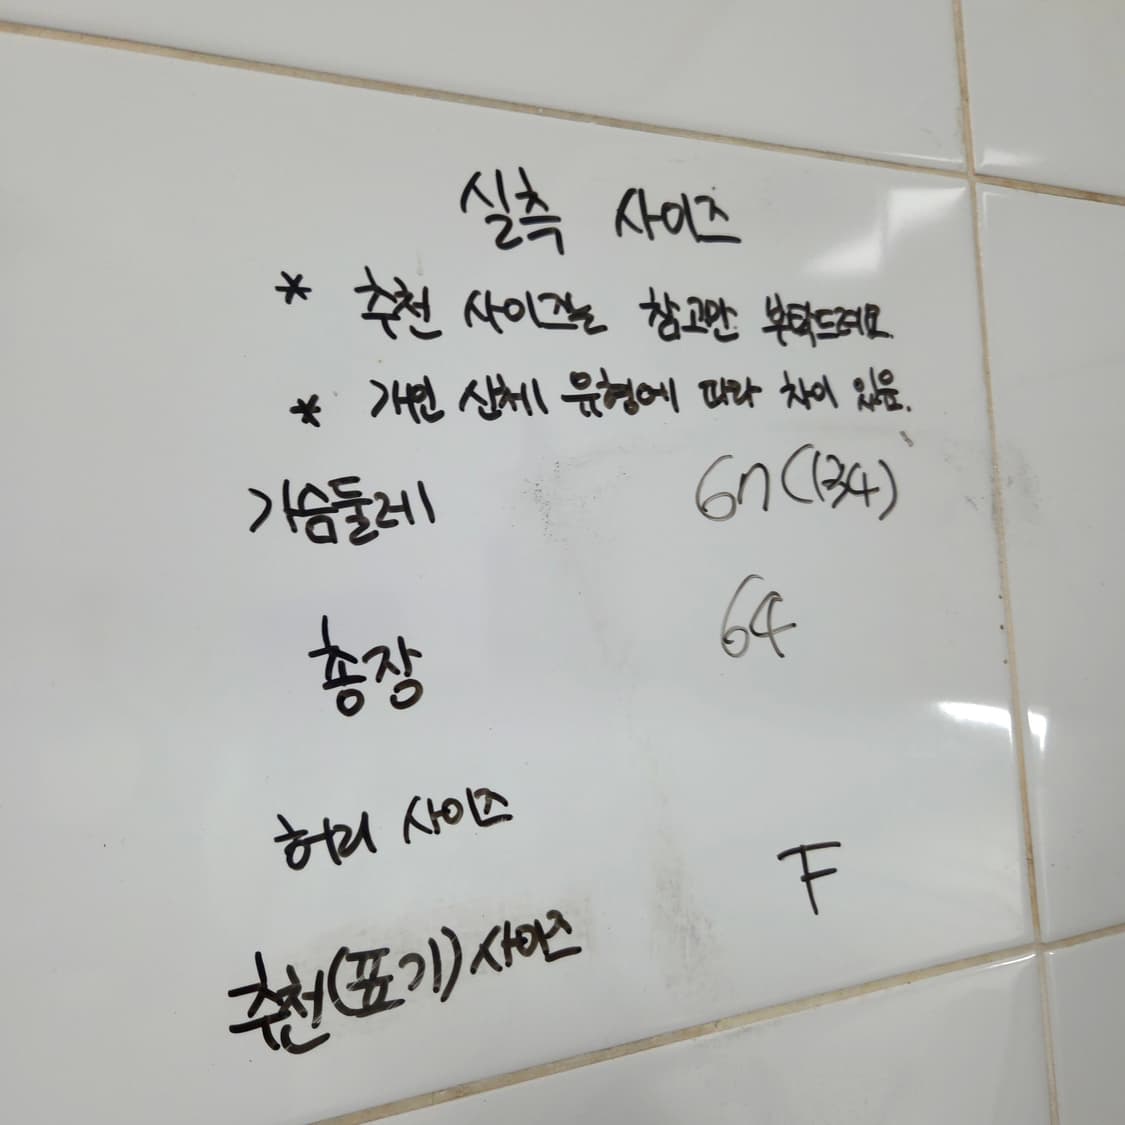 실측 사이즈
* 추천 사이즈는 참고만 부탁드려요.
* 개인 신체 유형에 따라 차이 있음.
가슴둘레 67(134)
총장 64
허리 사이즈
추천(표기) 사이즈 F